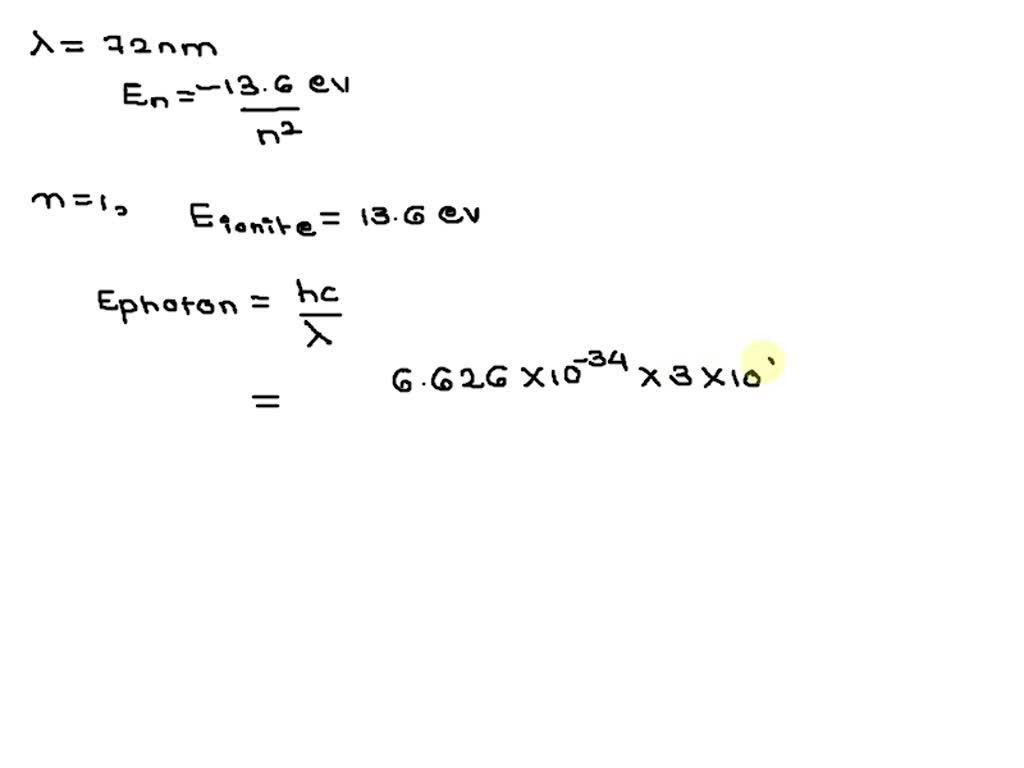 λ = 72nm
En = -13.6 ev / n²
n = 1, Eionite = 13.6 ev
Ephoton = hc / λ
= 6.626 × 10⁻³⁴ × 3 × 10